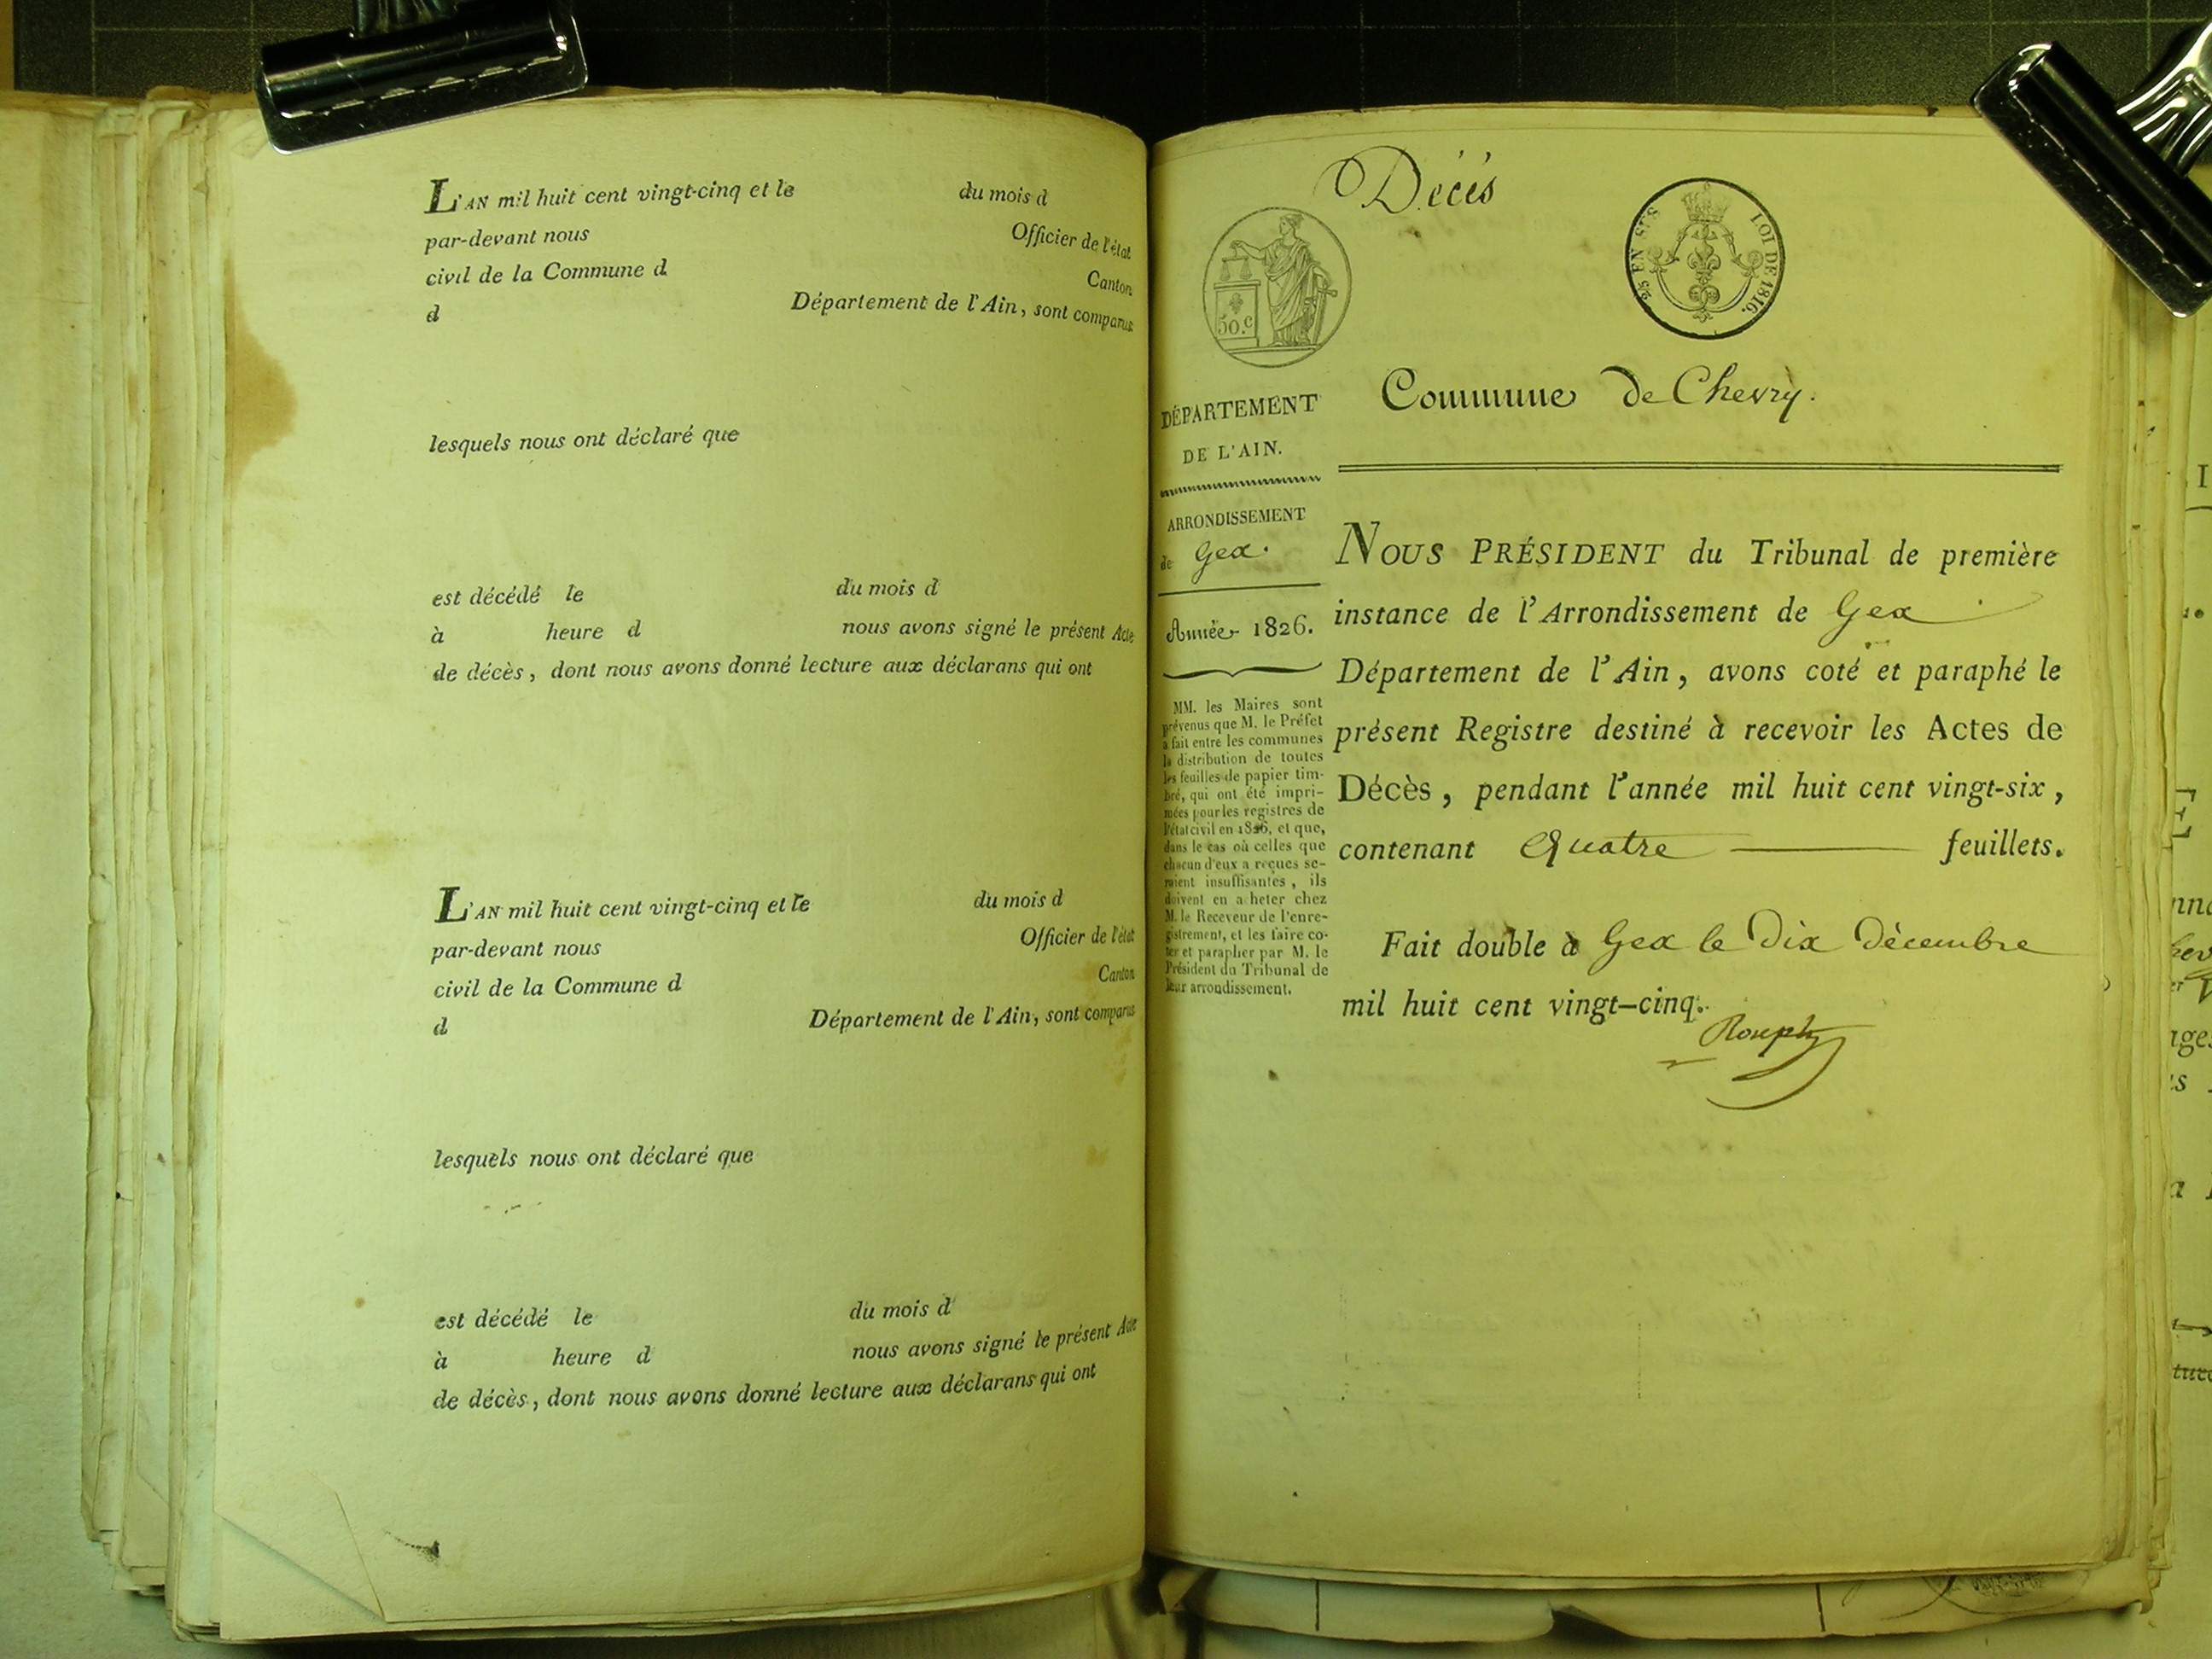 L'AN mil huit cent vingt-cinq et le du mois d
par-devant nous Officier de l'état
civil de la Commune d Canton
d Département de l'Ain, sont comparus
lesquels nous ont déclaré que
est décédé le du mois d
à heure d nous avons signé le présent Acte
de décès, dont nous avons donné lecture aux déclarans qui ont
L'AN mil huit cent vingt-cinq et le du mois d
par-devant nous Officier de l'état
civil de la Commune d Canton
d Département de l'Ain, sont comparus
lesquels nous ont déclaré que
est décédé le du mois d
à heure d nous avons signé le présent Acte
de décès, dont nous avons donné lecture aux déclarans qui ont
Décès
50.c
2/5 EN SUS
LOI DE 1816.
Commune de Chevry.
DÉPARTEMENT
DE L'AIN.
ARRONDISSEMENT
de Gex.
Année 1826.
MM. les Maires sont
prévenus que M. le Préfet
a fait entre les communes
la distribution de toutes
les feuilles de papier tim-
bré, qui ont été impri-
mées pour les registres de
l'état civil en 1826, et que,
dans le cas où celles que
chacun d'eux a reçues se-
roient insuffisantes, ils
doivent en a heter chez
M. le Receveur de l'enre-
gistrement, et les faire co-
ter et parapher par M. le
Président du Tribunal de
leur arrondissement.
NOUS PRÉSIDENT du Tribunal de première
instance de l'Arrondissement de Gex
Département de l'Ain, avons coté et paraphé le
présent Registre destiné à recevoir les Actes de
Décès, pendant l'année mil huit cent vingt-six,
contenant Quatre feuillets.
Fait double à Gex le Dix Décembre
mil huit cent vingt-cinq.